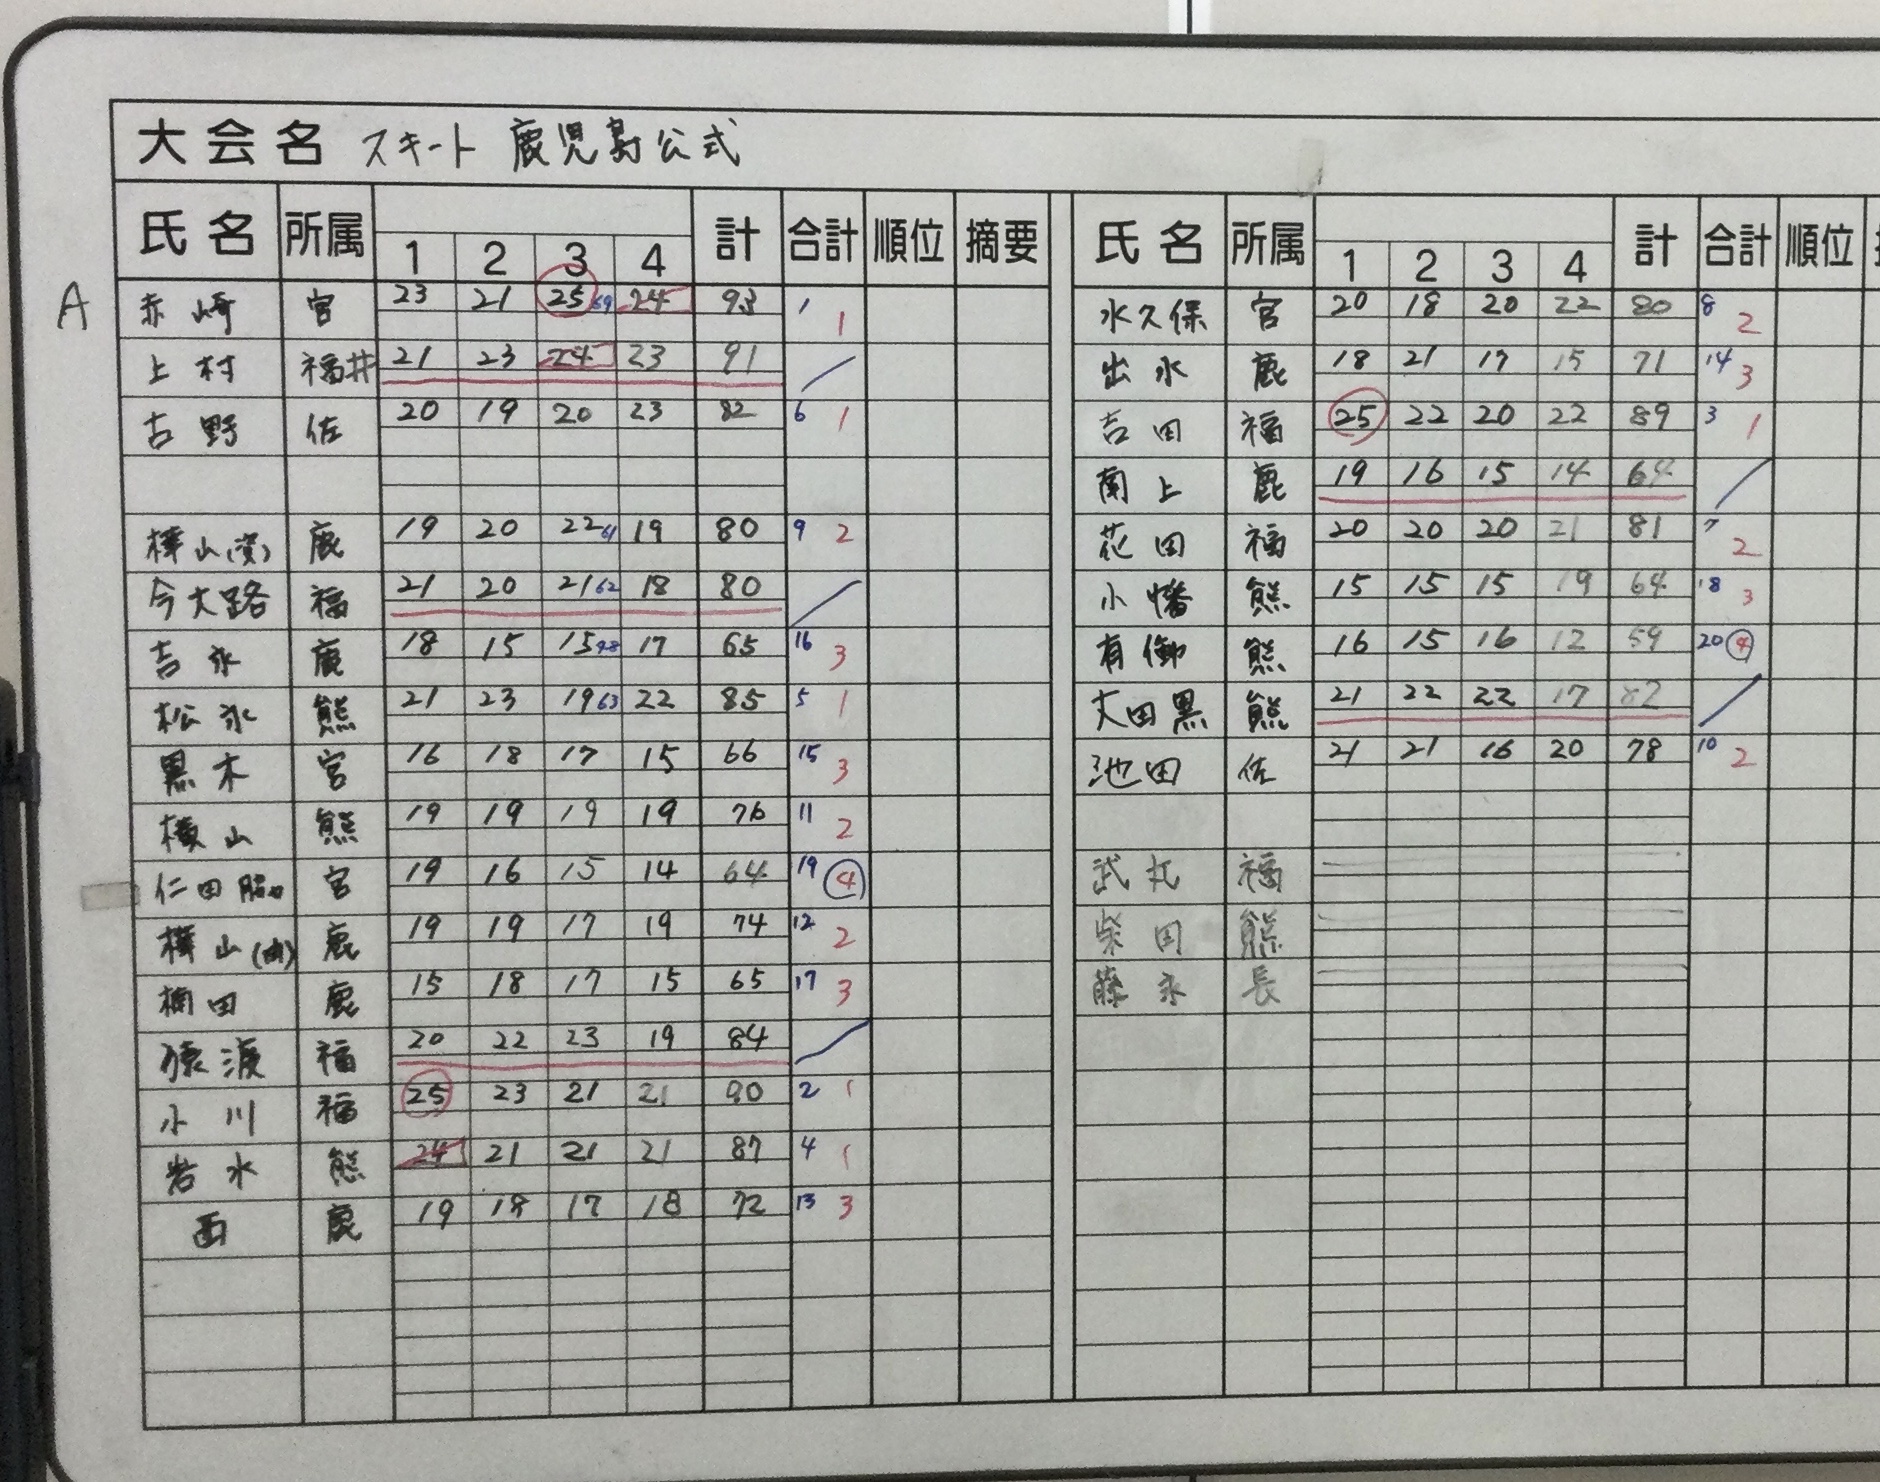 大会名 スキート 鹿児島公式
氏名 所属 1 2 3 4 計 合計 順位 摘要
A 赤崎 宮 23 21 25 69 24 93 1 1
上村 福井 21 23 24 23 91
古野 佐 20 19 20 23 82 6 1
樺山(資) 鹿 19 20 22 61 19 80 9 2
今大路 福 21 20 21 62 18 80
吉永 鹿 18 15 15 48 17 65 16 3
松永 熊 21 23 19 63 22 85 5 1
黒木 宮 16 18 17 15 66 15 3
横山 熊 19 19 19 19 76 11 2
仁田脇 宮 19 16 15 14 64 19 4
樺山(由) 鹿 19 19 17 19 74 12 2
楠田 鹿 15 18 17 15 65 17 3
猿渡 福 20 22 23 19 84
小川 福 25 23 21 21 90 2 1
岩水 熊 24 21 21 21 87 4 1
西 鹿 19 18 17 18 72 13 3
氏名 所属 1 2 3 4 計 合計 順位
水久保 宮 20 18 20 22 80 8 2
出水 鹿 18 21 17 15 71 14 3
吉田 福 25 22 20 22 89 3 1
南上 鹿 19 16 15 14 64
花田 福 20 20 20 21 81 7 2
小幡 熊 15 15 15 19 64 18 3
有働 熊 16 15 16 12 59 20 4
丈田黒 熊 21 22 22 17 82
池田 佐 21 21 16 20 78 10 2
武丸 福
柴田 熊
藤永 長